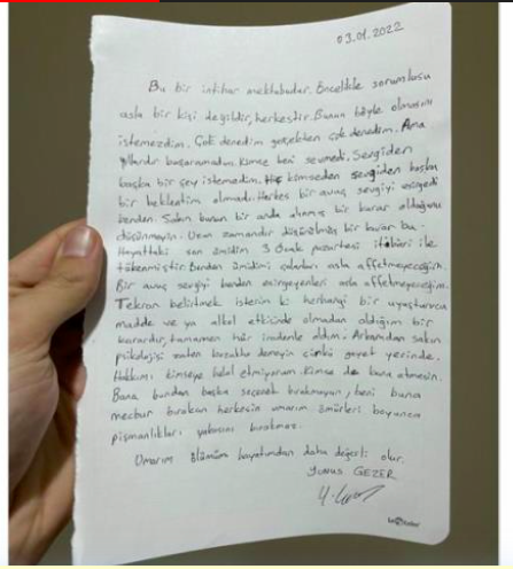 03.01.2022
Bu bir intihar mektubudur. Öncelikle sorumlusu
asla bir kişi değildir, herkestir. Bunun böyle olmasını
istemezdim. Çok denedim gerçekten çok denedim. Ama
yıllardır başaramadım. Kimse beni sevmedi. Sevgiden
başka bir şey istemedim. Hiç kimseden sevgiden başka
bir beklentim olmadı. Herkes bir avuç sevgiyi esirgedi
benden. Sakın bunun bir anda alınmış bir karar olduğunu
düşünmeyin. Uzun zamandır düşünülmüş bir karar bu.
Hayattaki son ümidim 3 Ocak pazartesi itibari ile
tükenmiştir. Benden ümidimi çalanları asla affetmeyeceğim.
Bir avuç sevgiyi benden esirgeyenleri asla affetmeyeceğim.
Tekrar belirtmek isterim ki herhangi bir uyuşturucu
madde ve ya alkol etkisinde olmadan aldığım bir
karardır, tamamen hür irademle aldım. Arkamdan sakın
psikolojisi zaten bozuktu demeyin çünkü gayet yerinde.
Hakkımı kimseye helal etmiyorum. Kimse de bana etmesin.
Bana bundan başka seçenek bırakmayan, beni buna
mecbur bırakan herkesin umarım ömürleri boyunca
pişmanlıkları yakasını bırakmaz.
Umarım ölümüm hayatımdan daha değerli olur.
Yunus GEZER